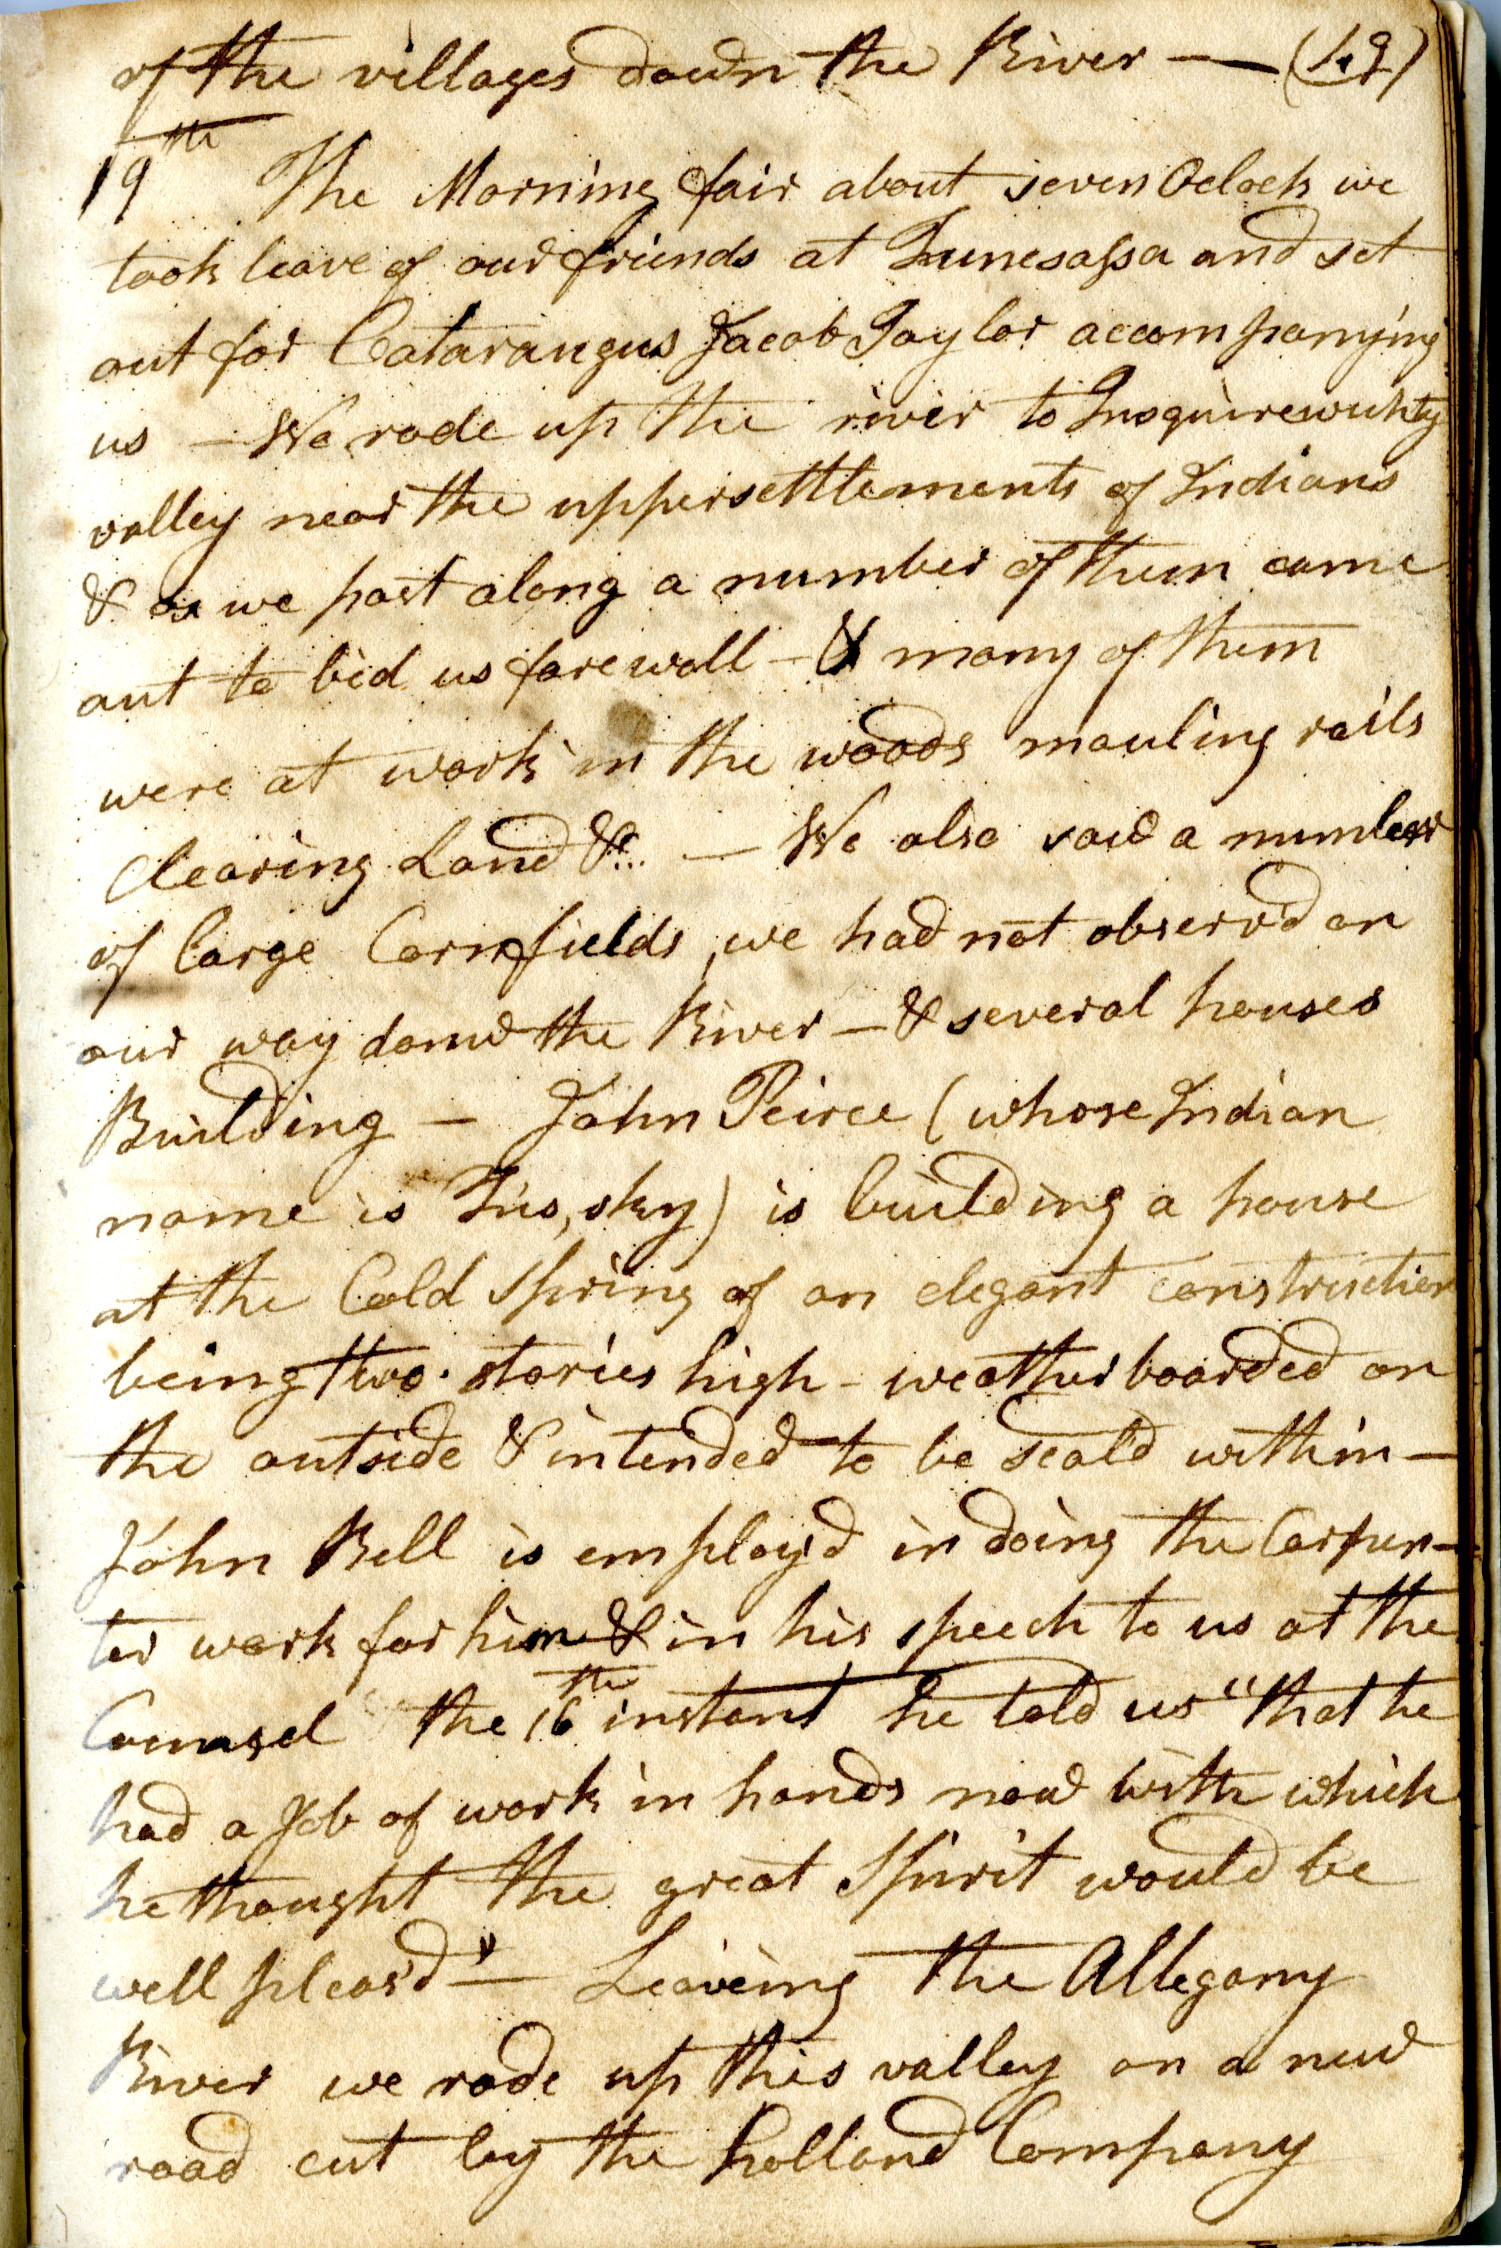 of the villages down the River — (49)
19th The Morning fair about seven Oclock we
took leave of our friends at Tunesassa and set
out for Cataraugus Jacob Taylor accompanying
us — We rode up the river to Tusquirewuhty
valley near the upper settlements of Indians
& as we past along a number of them came
out to bid us farewell - & many of them
were at work in the woods mauling rails
Clearing Land &c. — We also saw a number
of large Cornfields, we had not observd on
our way down the River — & several houses
Building — John Peirce (whose Indian
name is Tus,sky) is building a house
at the Cold Spring of an elegant construction
being two stories high - weatherboarded on
the outside & intended to be seald within —
John Bell is employ'd in doing the Carpen-
ter work for him & in his speech to us at the
Counsel the 16th instant he told us "that he
had a Job of work in hands now with which
he thought the great Spirit would be
well pleas'd" — Leaveing the Allegany
River we rode up this valley on a new
road cut by the Holland Company